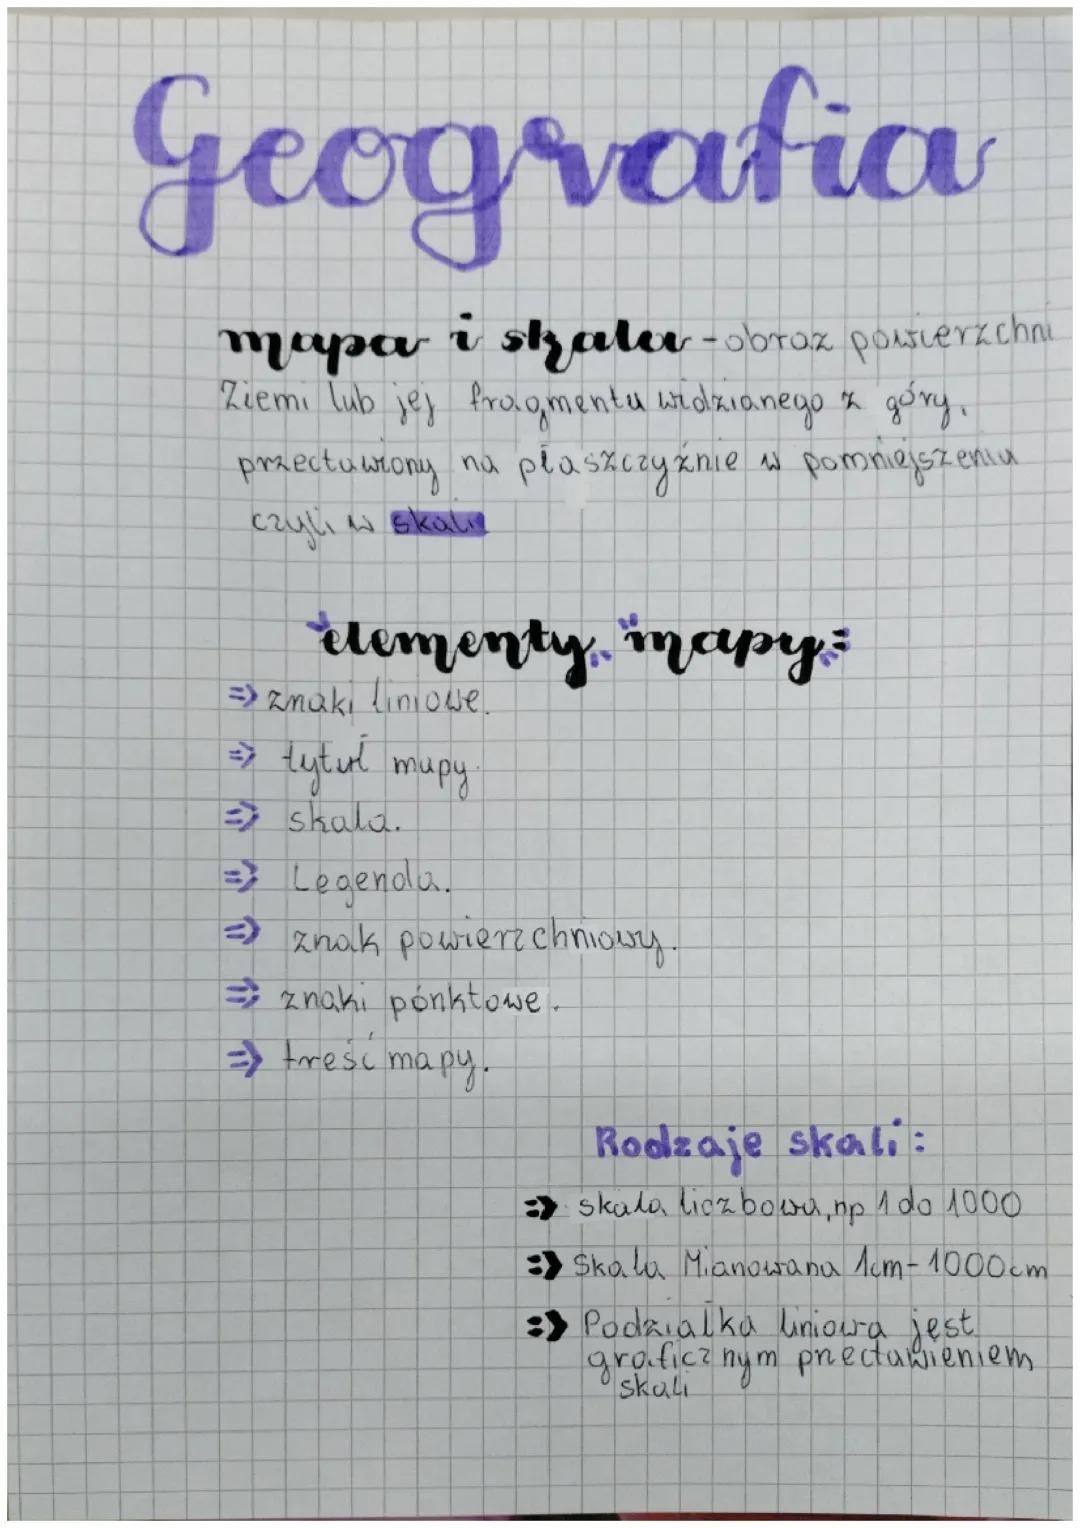 Geografia
mapa i skala - obraz powierzchni
Ziemi lub jej fragmentu widzianego z góry,
przectawiony na płaszczyźnie w pomniejszeniu
czyli w skali
elementy mapy:
=> znaki liniowe.
=> tytuł mapy.
=> skala.
=> Legenda.
=> znak powierzchniowy.
=> znaki pónktowe.
=> treść mapy.
Rodzaje skali:
=> skala liczbowa, np 1 do 1000
=> Skala Mianowana 1cm - 1000cm
=> Podziałka liniowa jest
graficznym przectawieniem
skali